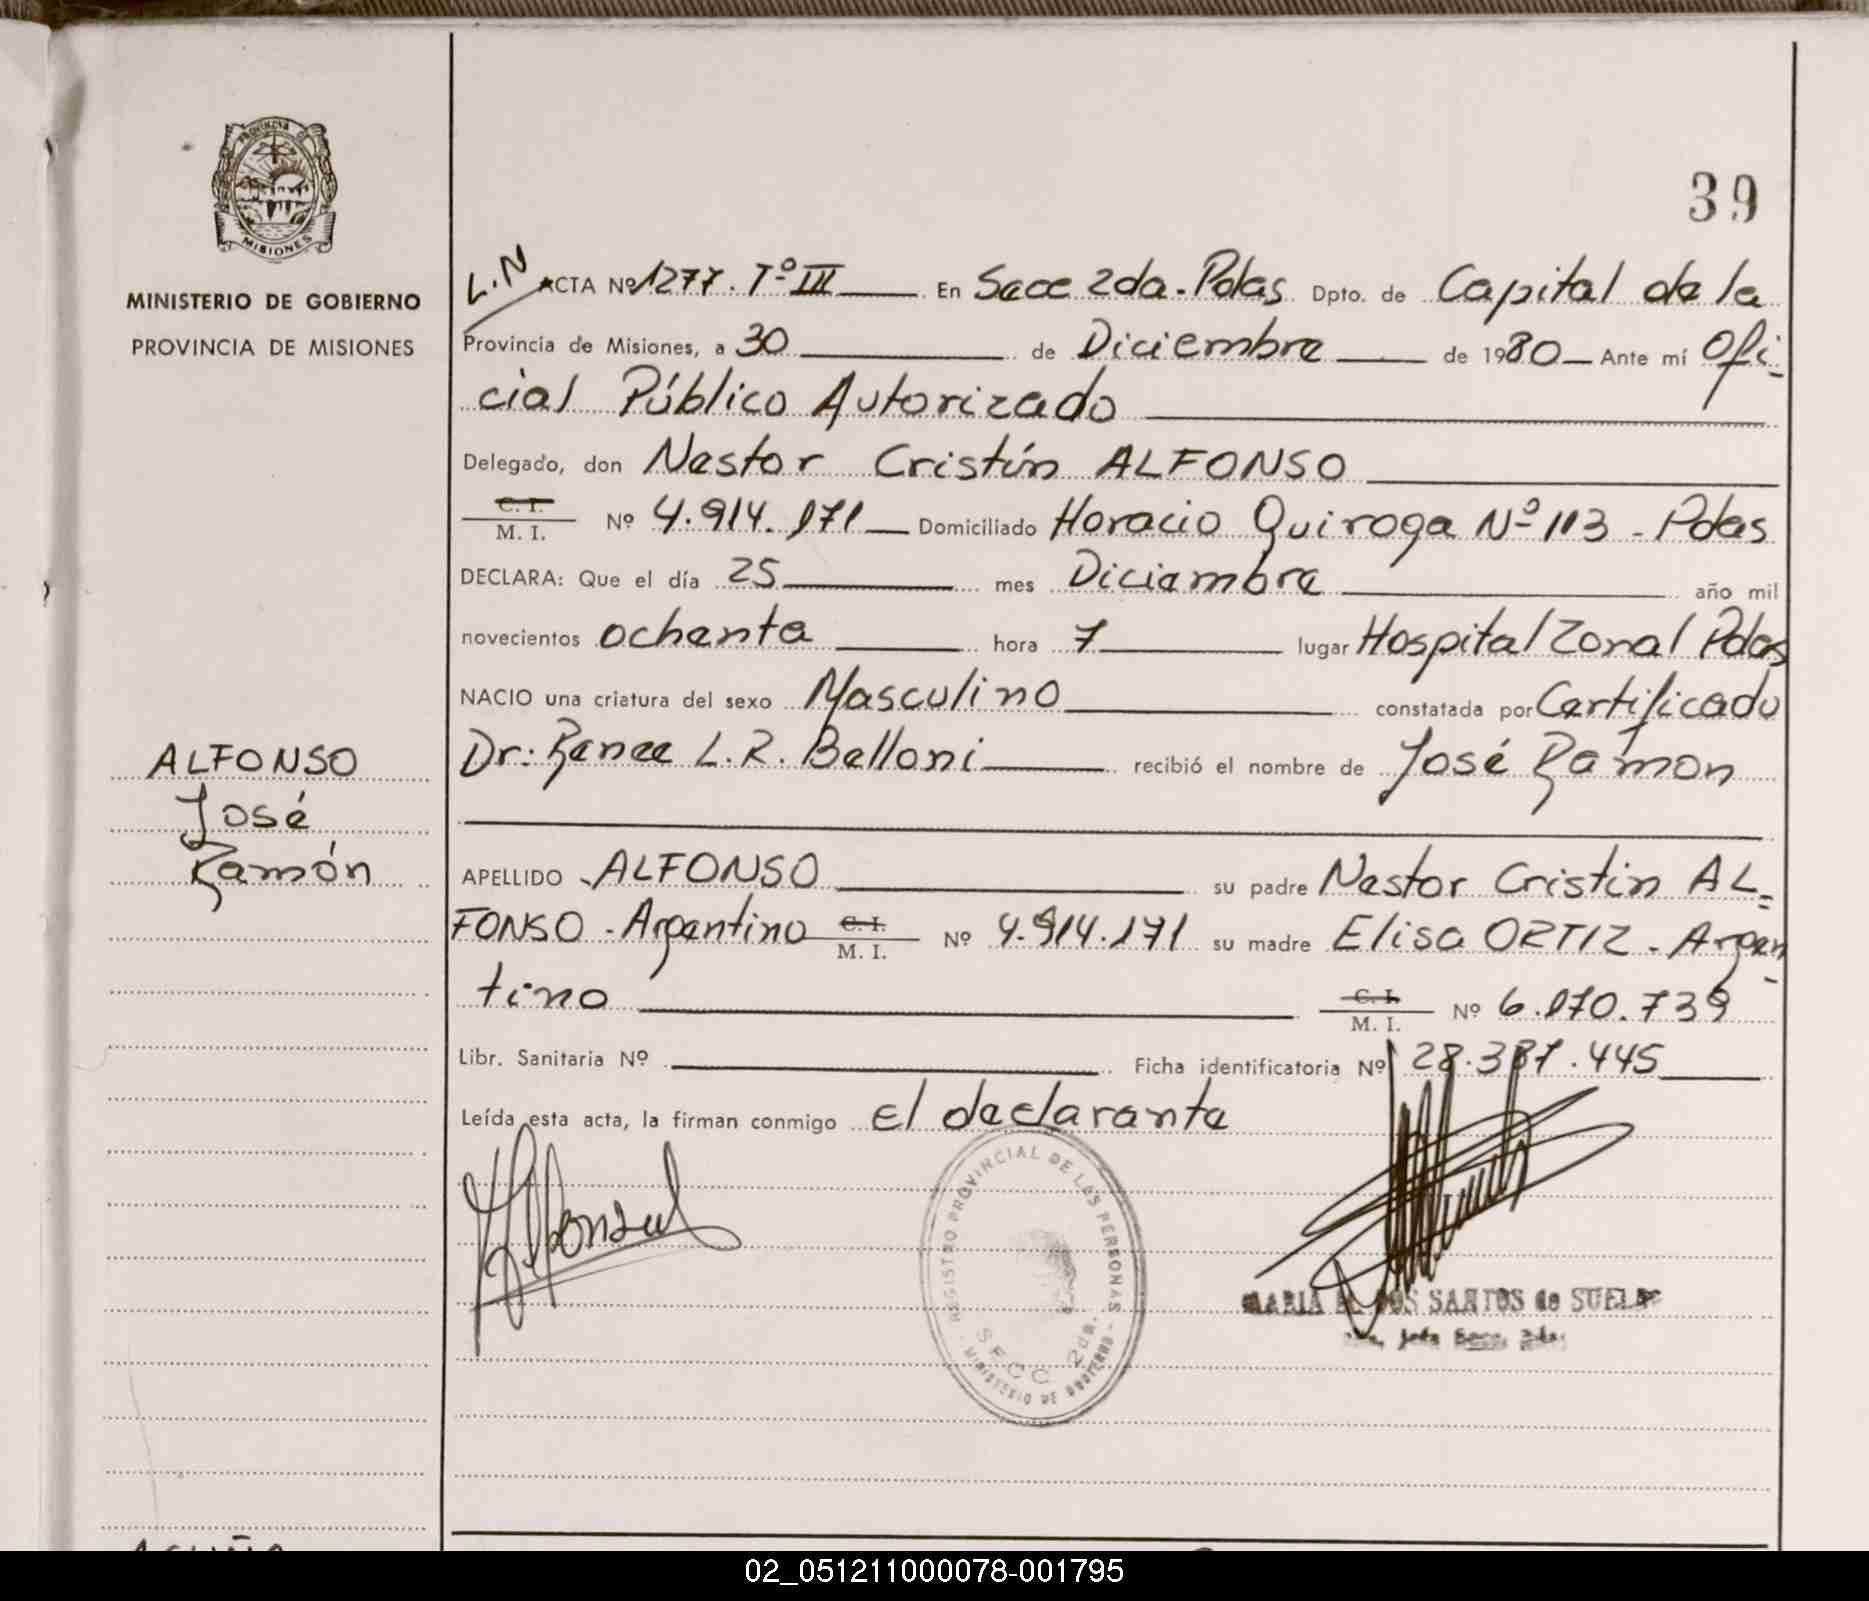 PROVINCIA DE
MISIONES
MINISTERIO DE GOBIERNO
PROVINCIA DE MISIONES
39
L.N
ACTA Nº 1277. Tº III En Secc 2da. Pdas Dpto. de Capital de la
Provincia de Misiones, a 30 de Diciembre de 1980 Ante mí Ofi-
cial Público Autorizado
Delegado, don Nestor Cristín ALFONSO
C. I.
M. I. Nº 4.914.171 Domiciliado Horacio Quiroga Nº 113 - Pdas
DECLARA: Que el día 25 mes Diciembre año mil
novecientos ochenta hora 7 lugar Hospital Zonal Pdas
NACIO una criatura del sexo Masculino constatada por Certificado
Dr: Renee L. R. Belloni recibió el nombre de José Ramon
ALFONSO
José
Ramón
APELLIDO ALFONSO su padre Nestor Cristin AL=
FONSO - Argentino C. I. M. I. Nº 4.914.171 su madre Elisa ORTIZ - Argen
tino C. I. M. I. Nº 6.170.739
Libr. Sanitaria Nº Ficha identificatoria Nº 28.387.445
Leída esta acta, la firman conmigo el declarante
REGISTRO PROVINCIAL DE LAS PERSONAS
SECC 2da.
MINISTERIO DE GOBIERNO
MARIA DOS SANTOS de SUELD
Jefa Secc. 2da.
02_051211000078-001795